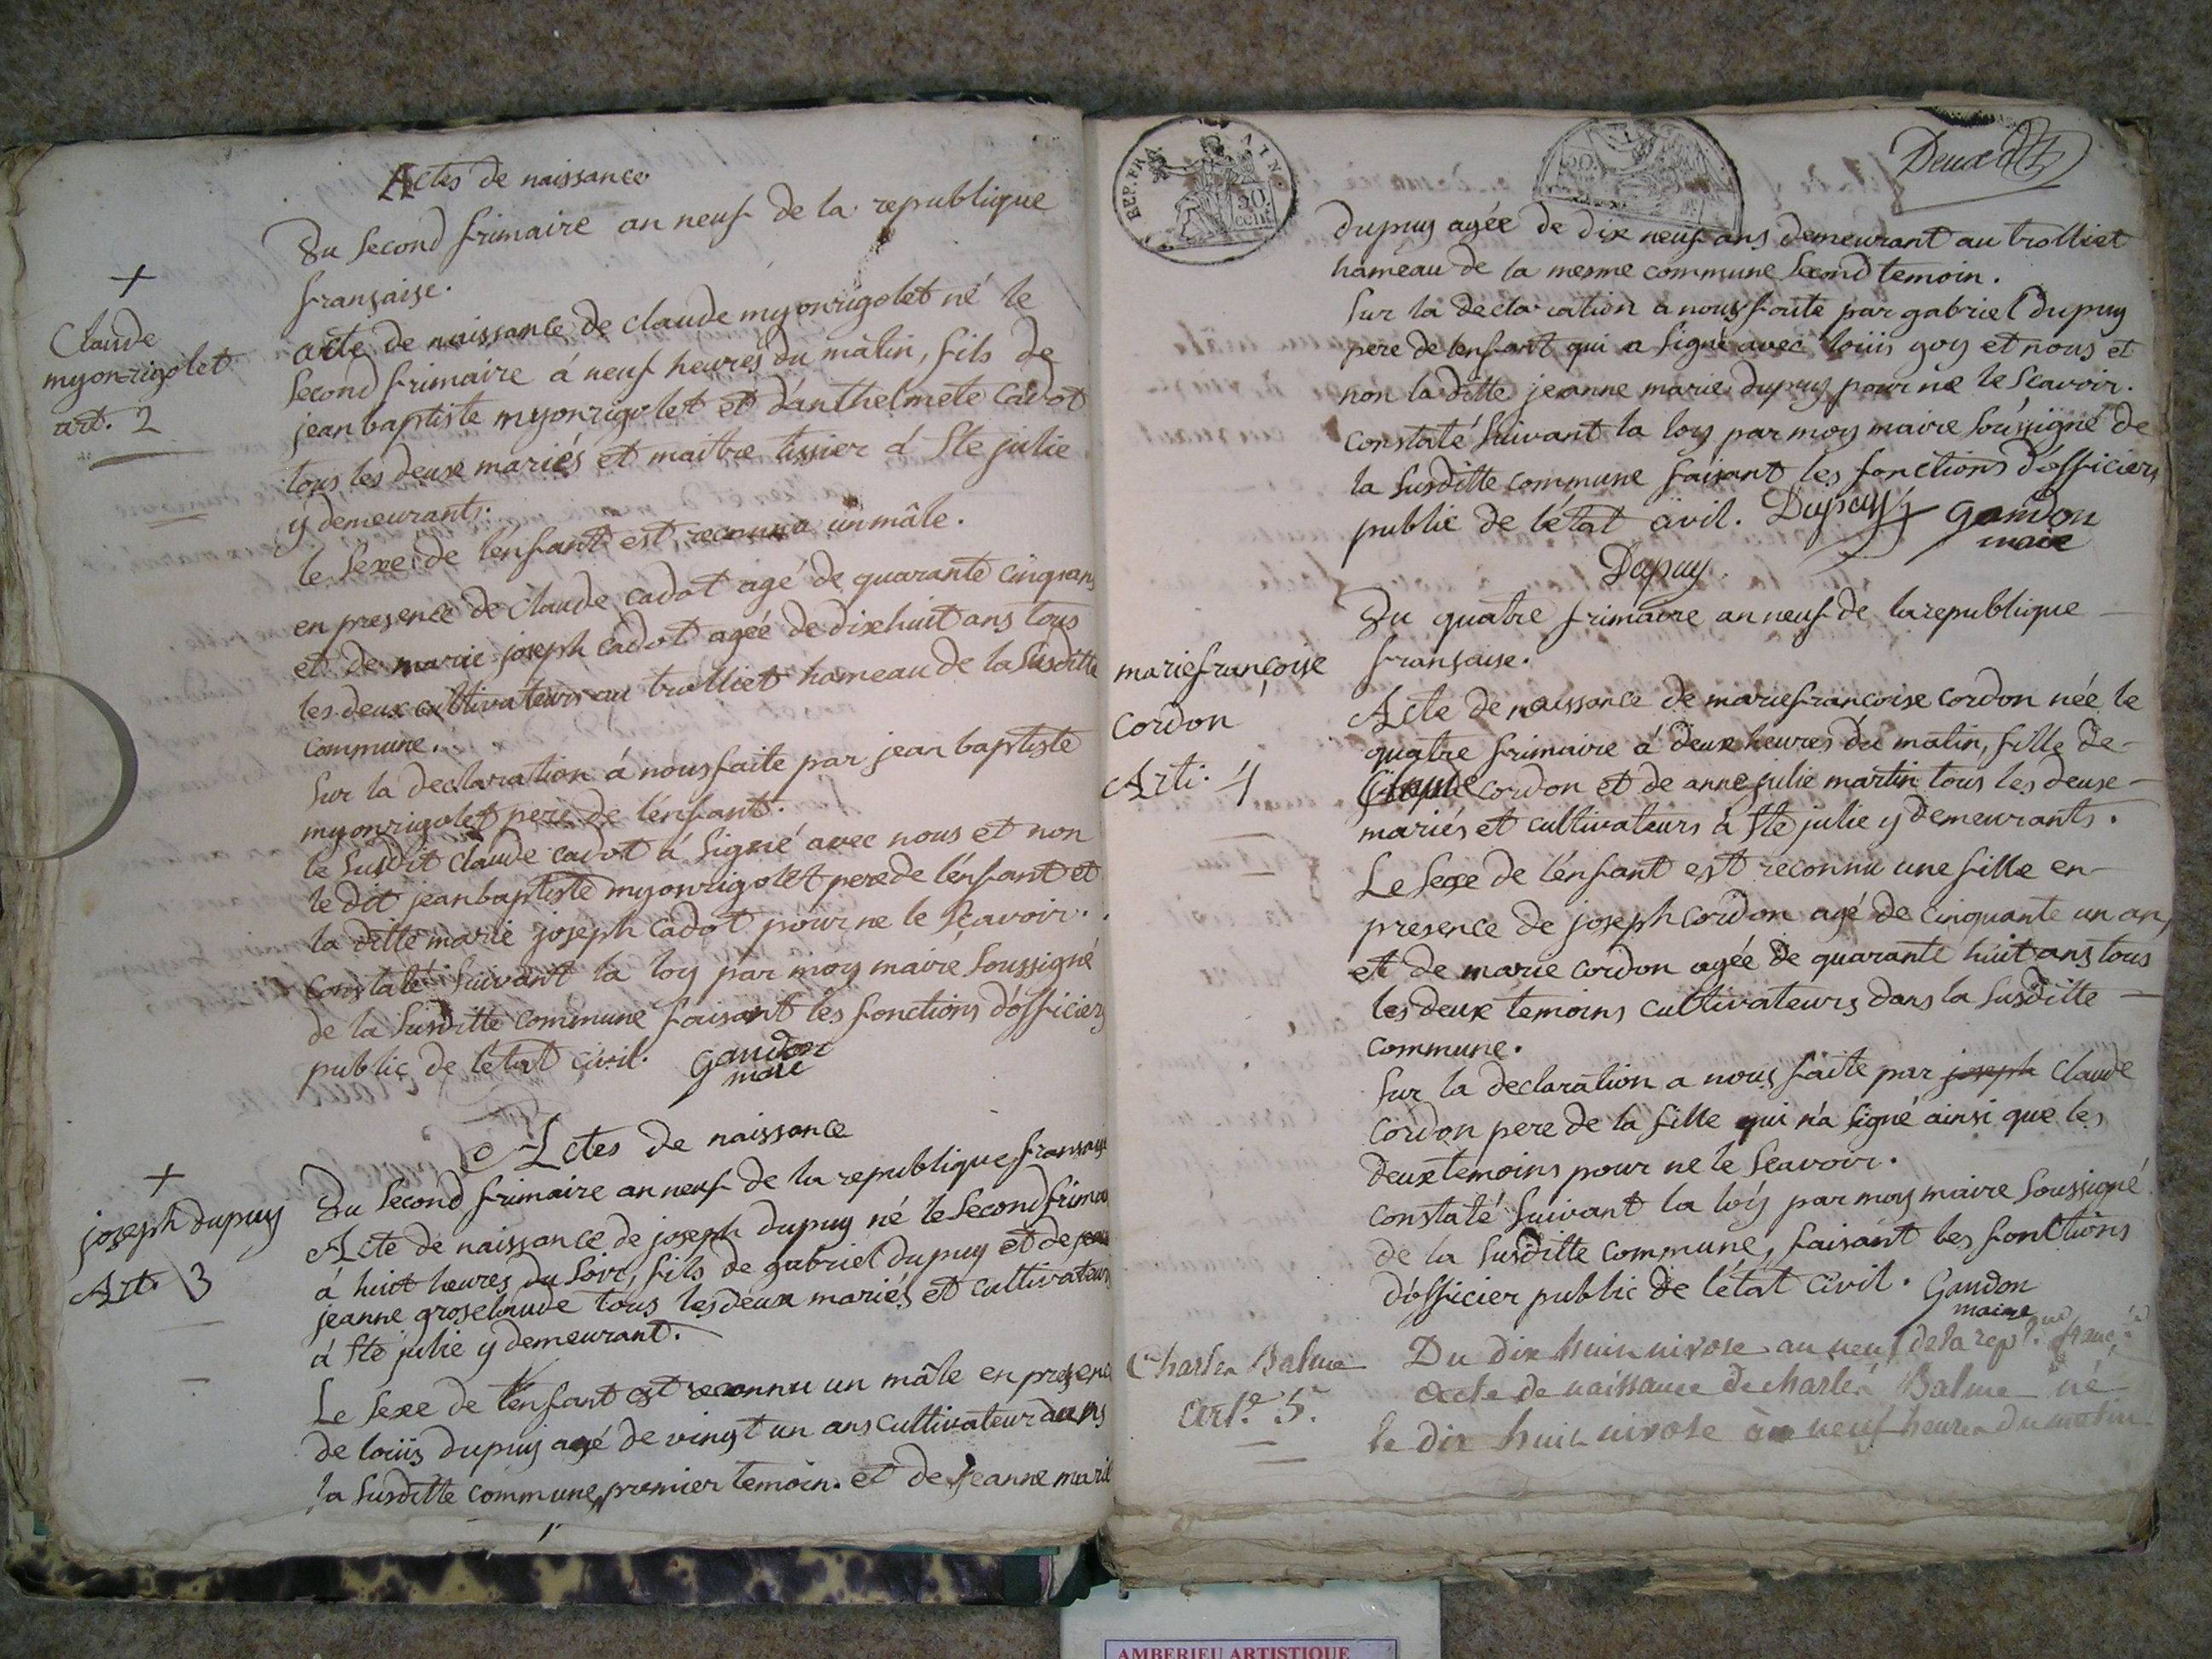 Actes de naissance
Du Second frimaire an neuf de la republique
française.
+
Claude
myonrigolet
art. 2
acte de naissance de claude myonrigolet né le
Second frimaire á neuf heures du mâtin, fils de
jean baptiste myonrigolet et d'anthelmete Cadot
tous les deuxe mariés et maitre tissier á Ste julie
y demeurants.
le Sexe de l'énfant est reconnu un mâle.
en presence de Claude Cadot agé de quarante cinq ans
et de marie joseph Cadot agée de dixehuit ans tous
les deux cultivateurs au trolliet hameau de la Susditte
Commune.
Sur la declaration á nous faite par jean baptiste
myonrigolet pere de l'énfant.
le Susdit Claude cadot á Signé avec nous et non
le dit jean baptiste myonrigolet pere de l'énfant et
la ditte marie joseph Cadot pour ne le Scavoir.
Constaté Suivant la loy par moy maire Soussigné
de la Susditte commune faisant les fonctions d'officiers
public de l'état civil. Gandon
maire
Actes de naissance
Du Second frimaire an neuf de la republique française
+
joseph dupuy
Art. 3
Acte de naissance de joseph dupuy né le Second frimaire
á huit heures du Soir, fils de gabriel dupuy et de
jeanne grosclaude tous les deux mariés et cultivateurs
á Ste julie y demeurant.
Le Sexe de l'enfant est reconnu un mâle en presence
de loüis dupuy agé de vingt un ans cultivateur dans
la Susditte commune premier temoin. et de jeanne marie
REP. FRA.
50
cent
Deux
dupuy agée de dix neuf ans demeurant au trolliet
hameau de la mesme commune Second temoin.
Sur la declaration a nous faite par gabriel dupuy
pere de lenfant qui a Signé avec loüis goy et nous et
non la ditte jeanne marie dupuy pour ne le Scavoir.
Constaté Suivant la loy par moy maire Soussigné de
la Susditte commune faisant les fonctions d'officiers
public de l'état civil. Dupuy Gandon
maire
Dupuy.
Du quatre frimaire an neuf de la republique
française.
marie françoise
Cordon
Arti. 4
Acte de naissance de marie françoise cordon née le
quatre frimaire á deux heures du matin, fille de
Claude cordon et de anne julie martin tous les deuxe
mariés et cultivateurs á Ste julie y demeurants.
Le Sexe de l'énfant est reconnu une fille en
presence de joseph cordon agé de cinquante un ans
et de marie cordon agée de quarante huit ans tous
les deux temoins cultivateurs dans la Susditte
commune.
Sur la declaration a nous faite par joseph Claude
Cordon pere de la fille qui n'a Signé ainsi que les
deux temoins pour ne le Scavoir.
Constaté Suivant la loy par moy maire Soussigné
de la Susditte commune, faisant les fonctions
d'officier public de l'état civil. Gandon
maire
Charles Balme
Art.e 5.
Du dix huit nivose an neuf de la rep.que franc.se
acte de naissance de charles Balme né
le dix huit nivose à neuf heures du matin
AMBERIEU ARTISTIQUE